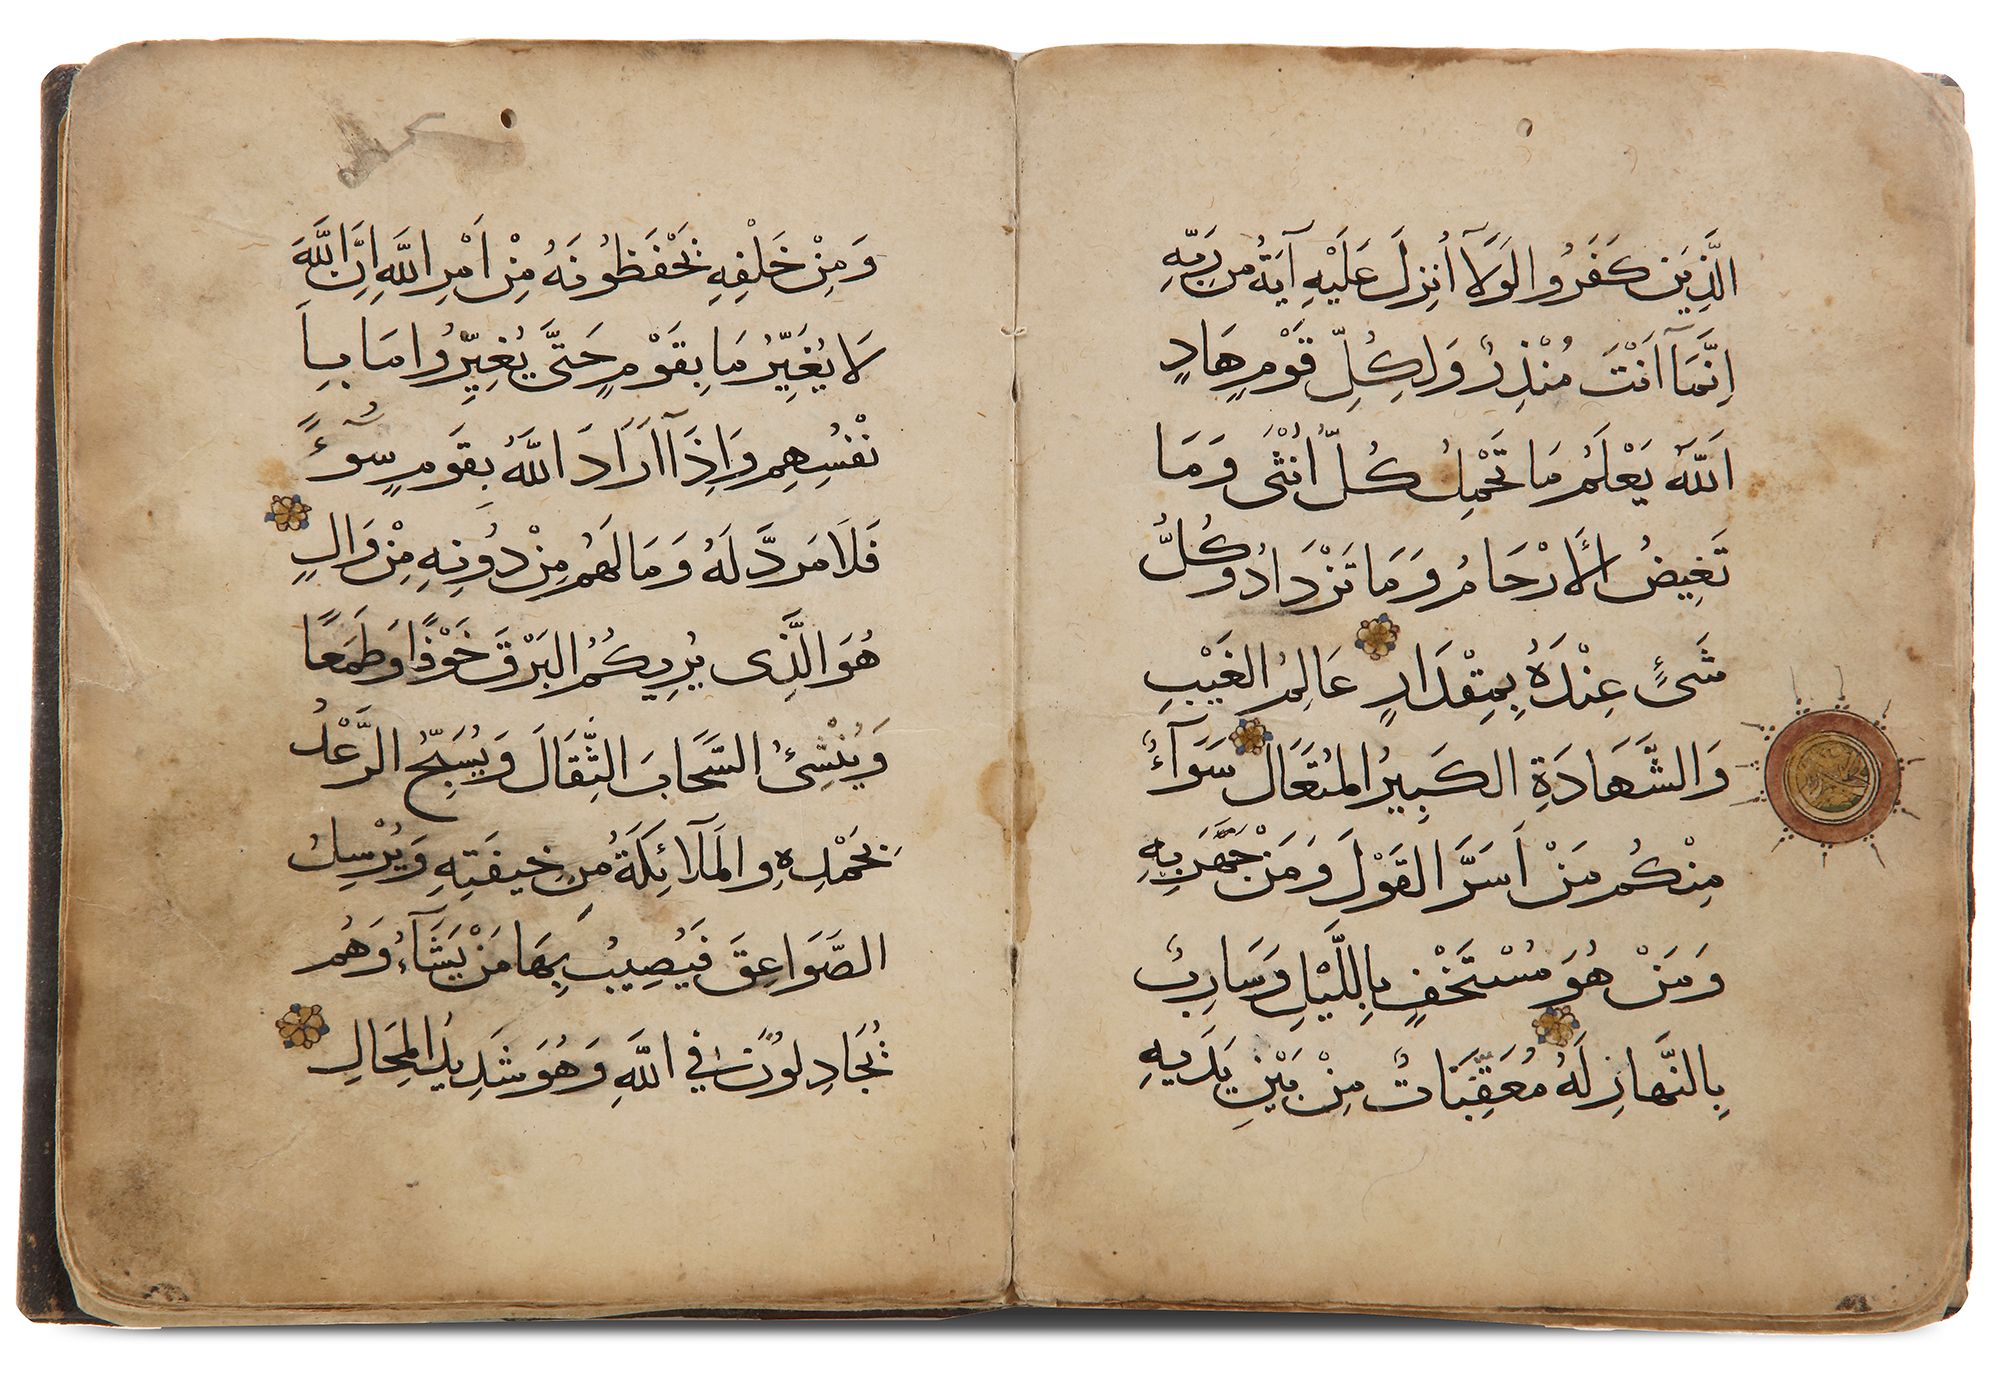 الَّذِينَ كَفَرُوا لَوْلَآ أُنزِلَ عَلَيْهِ آيَةٌ مِن رَبِّهِ
اِنَّمَآ اَنْتَ مُنْذِرٌ وَلِكُلِّ قَوْمٍ هَادٍ
اَللّٰهُ يَعْلَمُ مَا تَحْمِلُ كُلُّ اُنْثَى وَمَا
تَغِيضُ الْأَرْحَامُ وَمَا تَزْدَادُ وَكُلُّ
شَىْءٍ عِنْدَهُ بِمِقْدَارٍ عَالِمُ الغَيْبِ
وَالشَّهَادَةِ الكَبِيرُ المُتَعَالِ سَوَآءٌ
مِنْكُمْ مَنْ اَسَرَّ القَوْلَ وَمَنْ جَهَرَ بِهِ
وَمَنْ هُوَ مُسْتَخْفٍ بِاللَّيْلِ وَسَارِبٌ
بِالنَّهَارِ لَهُ مُعَقِّبَاتٌ مِنْ بَيْنِ يَدَيهِ
وَمِنْ خَلْفِهِ يَحْفَظُونَهُ مِنْ اَمْرِ اللَّهِ اِنَّ اللَّهَ
لَا يُغَيِّرُ مَا بِقَوْمٍ حَتَّى يُغَيِّرُوا مَا بِاَ
نْفُسِهِم وَاِذَآ اَرَادَ اللَّهُ بِقَومٍ سُوٓءًا
فَلَا مَرَدَّ لَهُ وَمَا لَهُم مِنْ دُونِهِ مِنْ وَالٍ
هُوَ الَّذِى يُرِيكُمُ البَرْقَ خَوْفًا وَطَمَعًا
وَيُنْشِئُ السَّحَابَ الثِّقَالَ وَيُسَبِّحُ الرَّعْدُ
بِحَمْدِهِ وَالمَلَآئِكَةُ مِن خِيفَتِهِ وَيُرْسِلُ
الصَّوَاعِقَ فَيُصِيبُ بِهَا مَنْ يَشَآءُ وَهُم
يُجَادِلُونَ فِي اللَّهِ وَهُوَ شَدِيدُ المِحَالِ